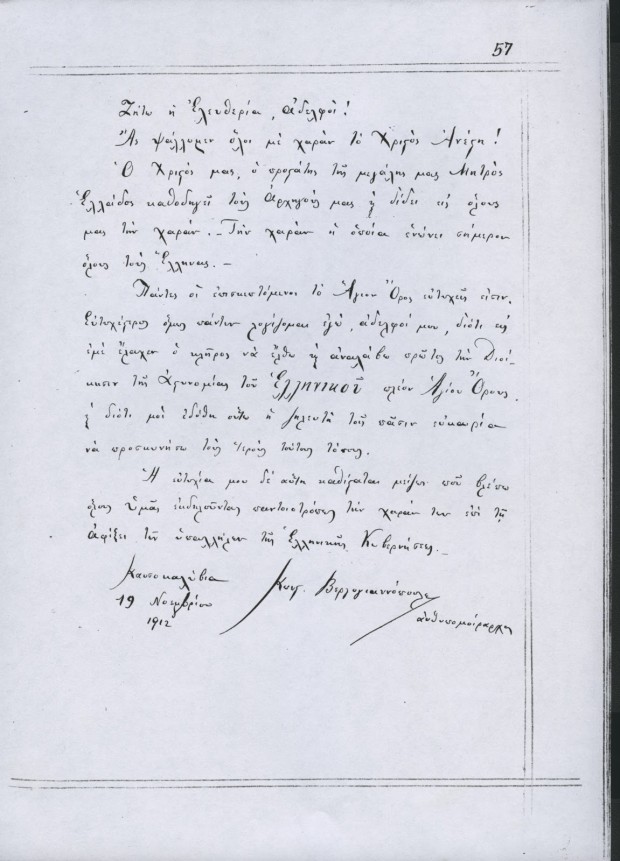 57
Ζήτω ἡ Ἐλευθερία, ἀδελφοί!
Ἄς ψάλλωμεν ὅλοι μὲ χαρὰν τὸ Χριστὸς Ἀνέστη!
Ὁ Χριστός μας, ὁ προστάτης τῆς μεγάλης μας Μητρὸς
Ἑλλάδος καθοδηγεῖ τοὺς Ἀρχηγούς μας ϗ δίδει εἰς ὅλους
μας τὴν χαράν. _ Τὴν χαρὰν ἡ ὁποία ἑνώνει σήμερον
ὅλους τοὺς Ἕλληνας. _
Πάντες οἱ ἐπισκεπτόμενοι τὸ Ἅγιον Ὄρος εὐτυχεῖς εἰσίν.
Εὐτυχέστερος ὅμως πάντων λογίζομαι ἐγώ, ἀδελφοί μου, διότι εἰς
ἐμὲ ἔλαχεν ὁ κλῆρος νὰ ἔλθω ϗ ἀναλάβω πρῶτος τὴν Διοί-
κησιν τῆς Ἀστυνομίας τοῦ Ἑλληνικοῦ πλέον Ἁγίου Ὄρους,
ϗ διότι μοὶ ἐδόθη οὕτω ἡ ζηλευτὴ τοῖς πᾶσιν εὐκαιρία
νὰ προσκυνήσω τοὺς Ἱεροὺς τούτους τόπους.
Ἡ εὐτυχία μου δὲ αὕτη καθίσταται μείζων ποῦ βλέπω
ὅλους ὑμᾶς ἐκδηλοῦντας παντοιοτρόπως τὴν χαράν των ἐπὶ τῇ
ἀφίξει τῶν ὑπαλλήλων τῆς Ἑλληνικῆς Κυβερνήσεως. _
Καυσοκαλύβια
19 Νοεμβρίου
1912
Κωνστ. Βεργογιαννόπουλος
ἀνθυπομοίραρχος